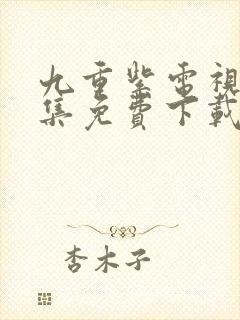 九重紫電視
集免費下載
杏木子